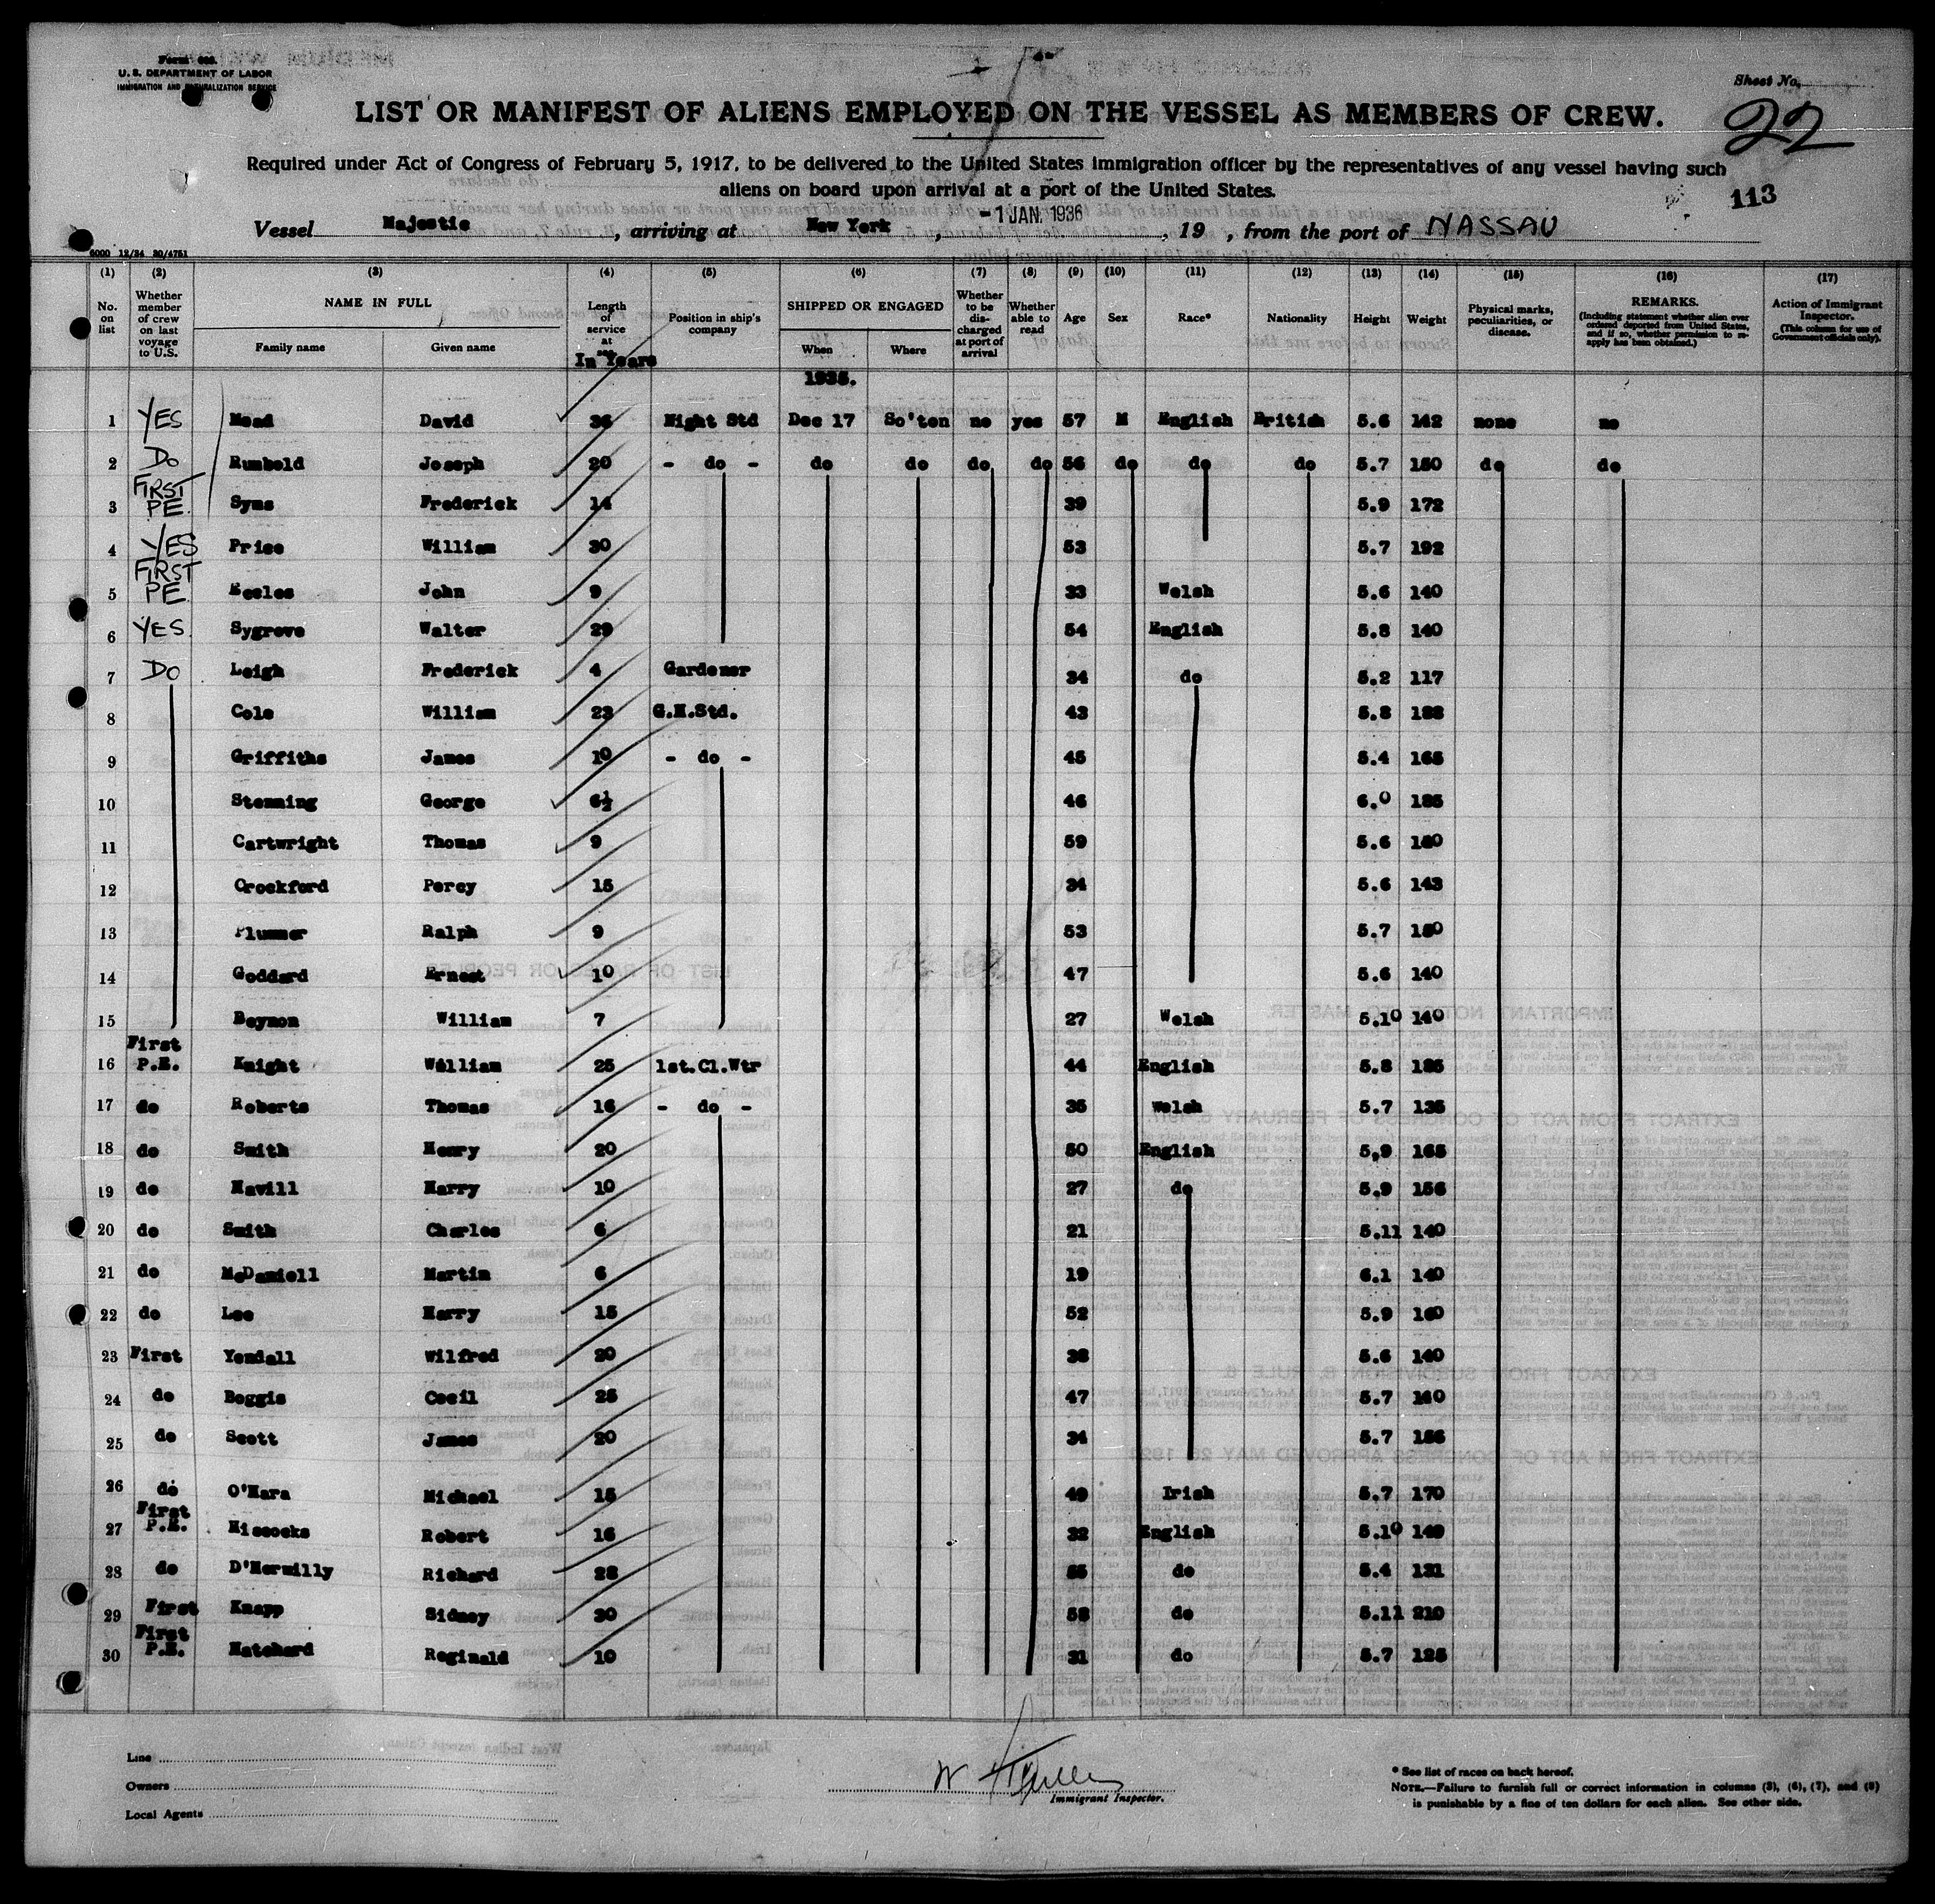 Form 689.
U. S. DEPARTMENT OF LABOR
IMMIGRATION AND NATURALIZATION SERVICE
Sheet No.
22
LIST OR MANIFEST OF ALIENS EMPLOYED ON THE VESSEL AS MEMBERS OF CREW.
Required under Act of Congress of February 5, 1917, to be delivered to the United States immigration officer by the representatives of any vessel having such
aliens on board upon arrival at a port of the United States.
113
Vessel Majestic, arriving at New York, -1 JAN. 1936, 19 , from the port of NASSAU
6000 12/34 30/4751
(1) (2) (3) (4) (5) (6) (7) (8) (9) (10) (11) (12) (13) (14) (15) (16) (17)
No. on list
Whether member of crew on last voyage to U.S.
NAME IN FULL
Family name
Given name
Length of service at sea
In Years
Position in ship's company
SHIPPED OR ENGAGED
When
Where
Whether to be discharged at port of arrival
Whether able to read
Age
Sex
Race*
Nationality
Height
Weight
Physical marks, peculiarities, or disease.
REMARKS.
(Including statement whether alien ever ordered deported from United States, and if so, whether permission to reapply has been obtained.)
Action of Immigrant Inspector.
(This column for use of Government officials only).
1935.
1 YES Mead David 36 Night Std Dec 17 So'ton no yes 57 M English British 5.6 142 none no
2 Do Rumbold Joseph 20 - do - do do do do 56 do do do 5.7 150 do do
3 FIRST PE. Syms Frederick 14 39 5.9 172
4 YES Price William 30 53 5.7 192
5 FIRST PE. Eccles John 9 33 Welsh 5.6 140
6 YES. Sygrove Walter 29 54 English 5.8 140
7 Do Leigh Frederick 4 Gardener 34 do 5.2 117
8 Cole William 23 G.H.Std. 43 5.8
9 Griffiths James 10 - do - 45 5.4 165
10 Stemming George 6½ 46 6.0
11 Cartwright Thomas 9 59 5.6
12 Crockford Percy 15 34 5.6 143
13 Plummer Ralph 9 53 5.7
14 Goddard Ernest 10 47 5.6 140
15 Beynon William 7 27 Welsh 5.10 140
16 First P.E. Knight William 25 1st.Cl.Wtr 44 English 5.8
17 do Roberts Thomas 16 - do - 35 Welsh 5.7 135
18 do Smith Henry 20 50 English 5,9 165
19 do Havill Harry 10 27 do 5.9 156
20 do Smith Charles 6 21 5.11 140
21 do McDaniell Martin 6 19 6.1 140
22 do Lee Harry 15 52 5.9
23 First Yendall Wilfred 20 38 5.6 140
24 do Boggis Cecil 25 47 5.7
25 do Scott James 20 34 5.7 156
26 do O'Hara Michael 15 49 Irish 5.7 170
27 First P.E. Hiscocks Robert 16 32 English 5.10 149
28 do D'Hermilly Richard 28 55 do 5.4 131
29 First Knapp Sidney 30 58 do 5.11 210
30 First P.E. Hatchard Reginald 10 31 do 5.7 125
Line
Owners
Local Agents
Immigrant Inspector.
* See list of races on back hereof.
NOTE.—Failure to furnish full or correct information in columns (3), (6), (7), and (8)
is punishable by a fine of ten dollars for each alien. See other side.